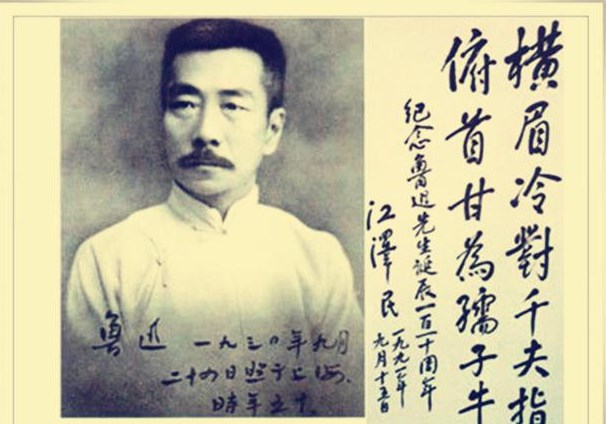 横眉冷對千夫指
俯首甘為孺子牛
纪念魯迅先生誕辰一百一十周年
江澤民
一九九一年
九月十五日
魯迅 一九三〇年九月
二十四日照于上海，
時年五十